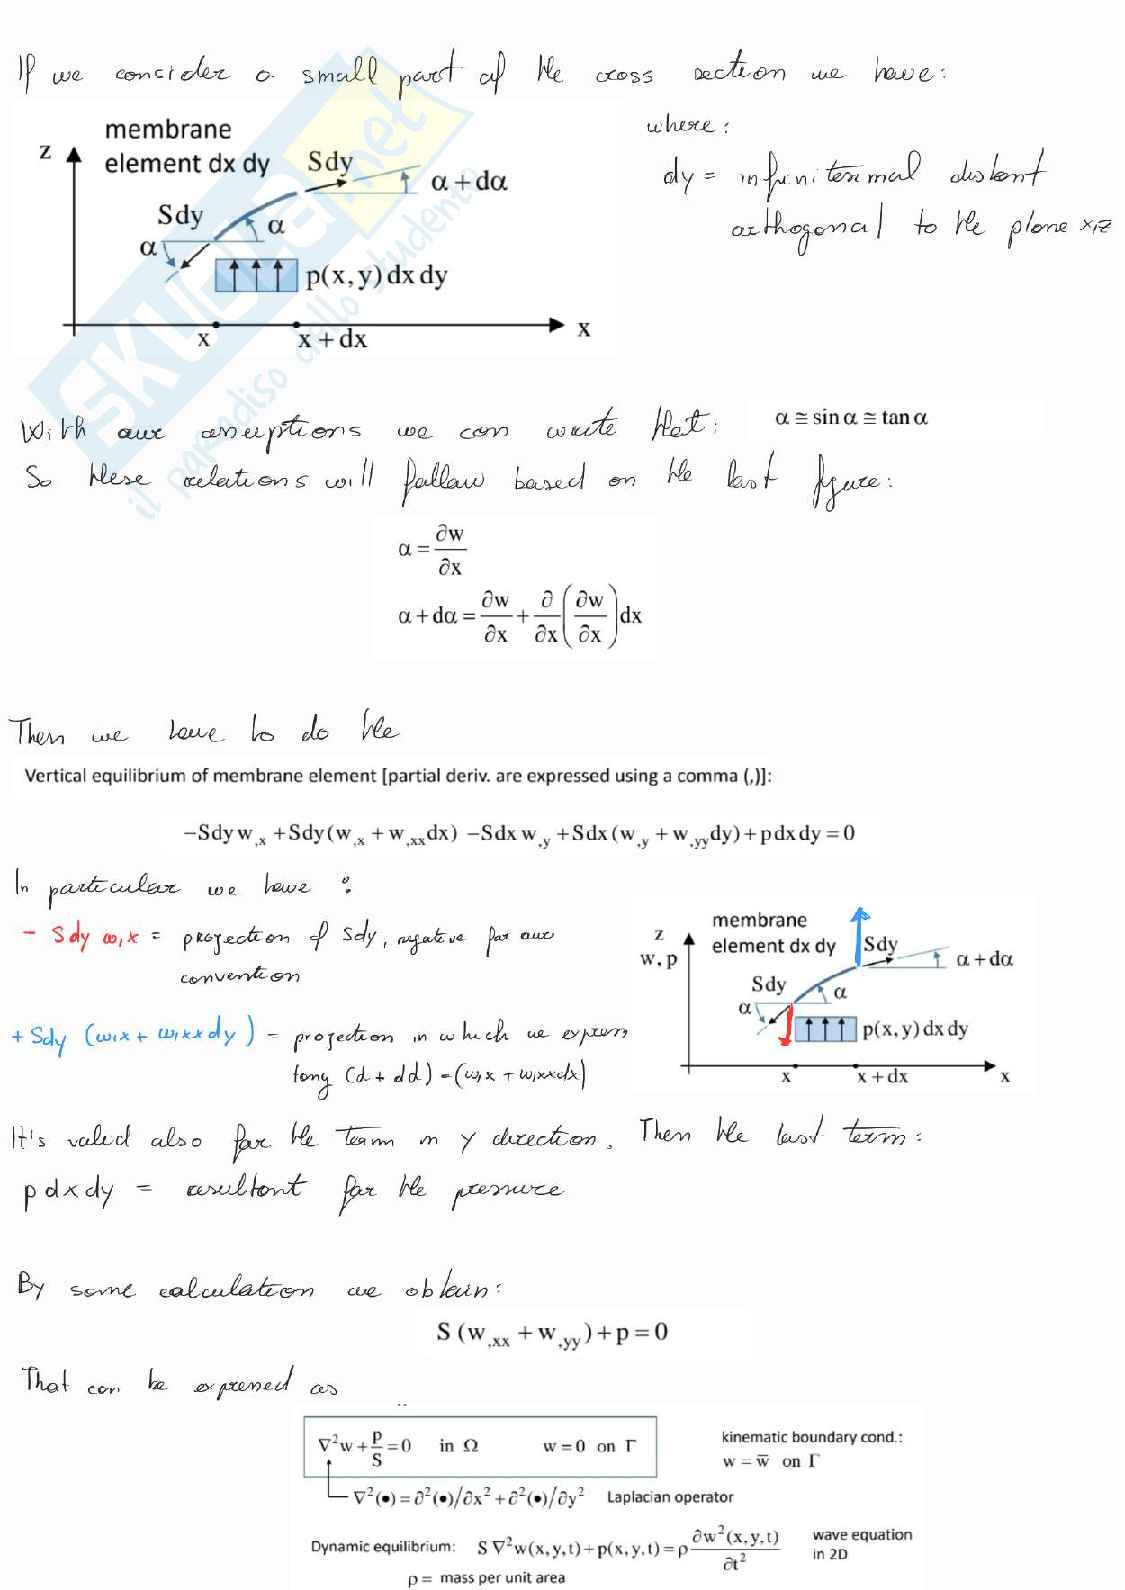 If we consider a small part of the cross section we have:
where:
dy = infinitesimal distant
orthogonal to the plane x,z
z
membrane
element dx dy
Sdy
α + dα
Sdy
α
α
p(x, y) dx dy
x
x + dx
x
SKUOLA.net
il paradiso dello studente
With our assumptions we can write that: α ≅ sin α ≅ tan α
So these relations will follow based on the last figure:
α = ∂w/∂x
α + dα = ∂w/∂x + ∂/∂x (∂w/∂x) dx
Then we have to do the
Vertical equilibrium of membrane element [partial deriv. are expressed using a comma (,)]:
−Sdy w,x + Sdy (w,x + w,xx dx) − Sdx w,y + Sdx (w,y + w,yy dy) + p dx dy = 0
In particular we have :
− Sdy w,x = projection of Sdy, negative for our
convention
+ Sdy (w,x + w,xx dy) = projection in which we express
tang (α + dα) = (w,x + w,xx dx)
z
w, p
membrane
element dx dy
Sdy
α + dα
Sdy
α
α
p(x, y) dx dy
x
x + dx
x
It's valid also for the term in y direction. Then the last term:
p dx dy = resultant for the pressure
By some calculation we obtain:
S (w,xx + w,yy) + p = 0
That can be expressed as
∇²w + p/S = 0 in Ω w = 0 on Γ
kinematic boundary cond.:
w = w̅ on Γ
∇²(•) = ∂²(•)/∂x² + ∂²(•)/∂y² Laplacian operator
Dynamic equilibrium: S ∇²w(x, y, t) + p(x, y, t) = ρ ∂w²(x, y, t)/∂t² wave equation
in 2D
ρ = mass per unit area